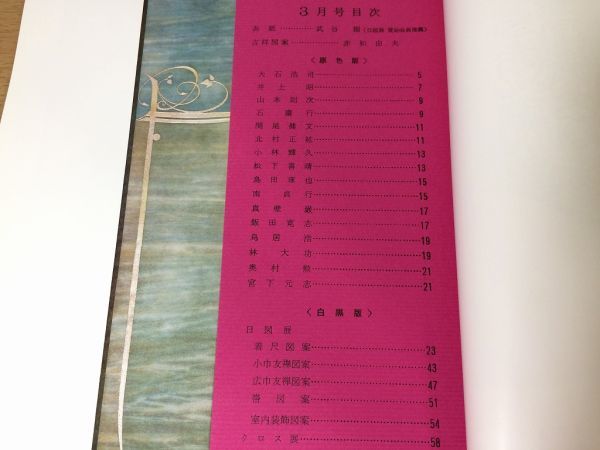 3月号目次
表紙……………武谷
吉祥図案……………赤松由夫
〈原色版〉
大石浩司……………5
井上昭……………7
山本如次……………9
石慶行……………9
関尾雄文……………11
北村正紘……………11
小林雅久……………13
松下喜晴……………13
島田琢也……………15
南貞行……………15
真壁巌……………17
飯田克志……………17
鳥居浩……………19
林大功……………19
奥村毅……………21
宮下元志……………21
〈白黒版〉
日図展
着尺図案……………23
小巾友禅図案……………43
広巾友禅図案……………47
帯図案……………51
室内装飾図案……………54
クロス展……………58